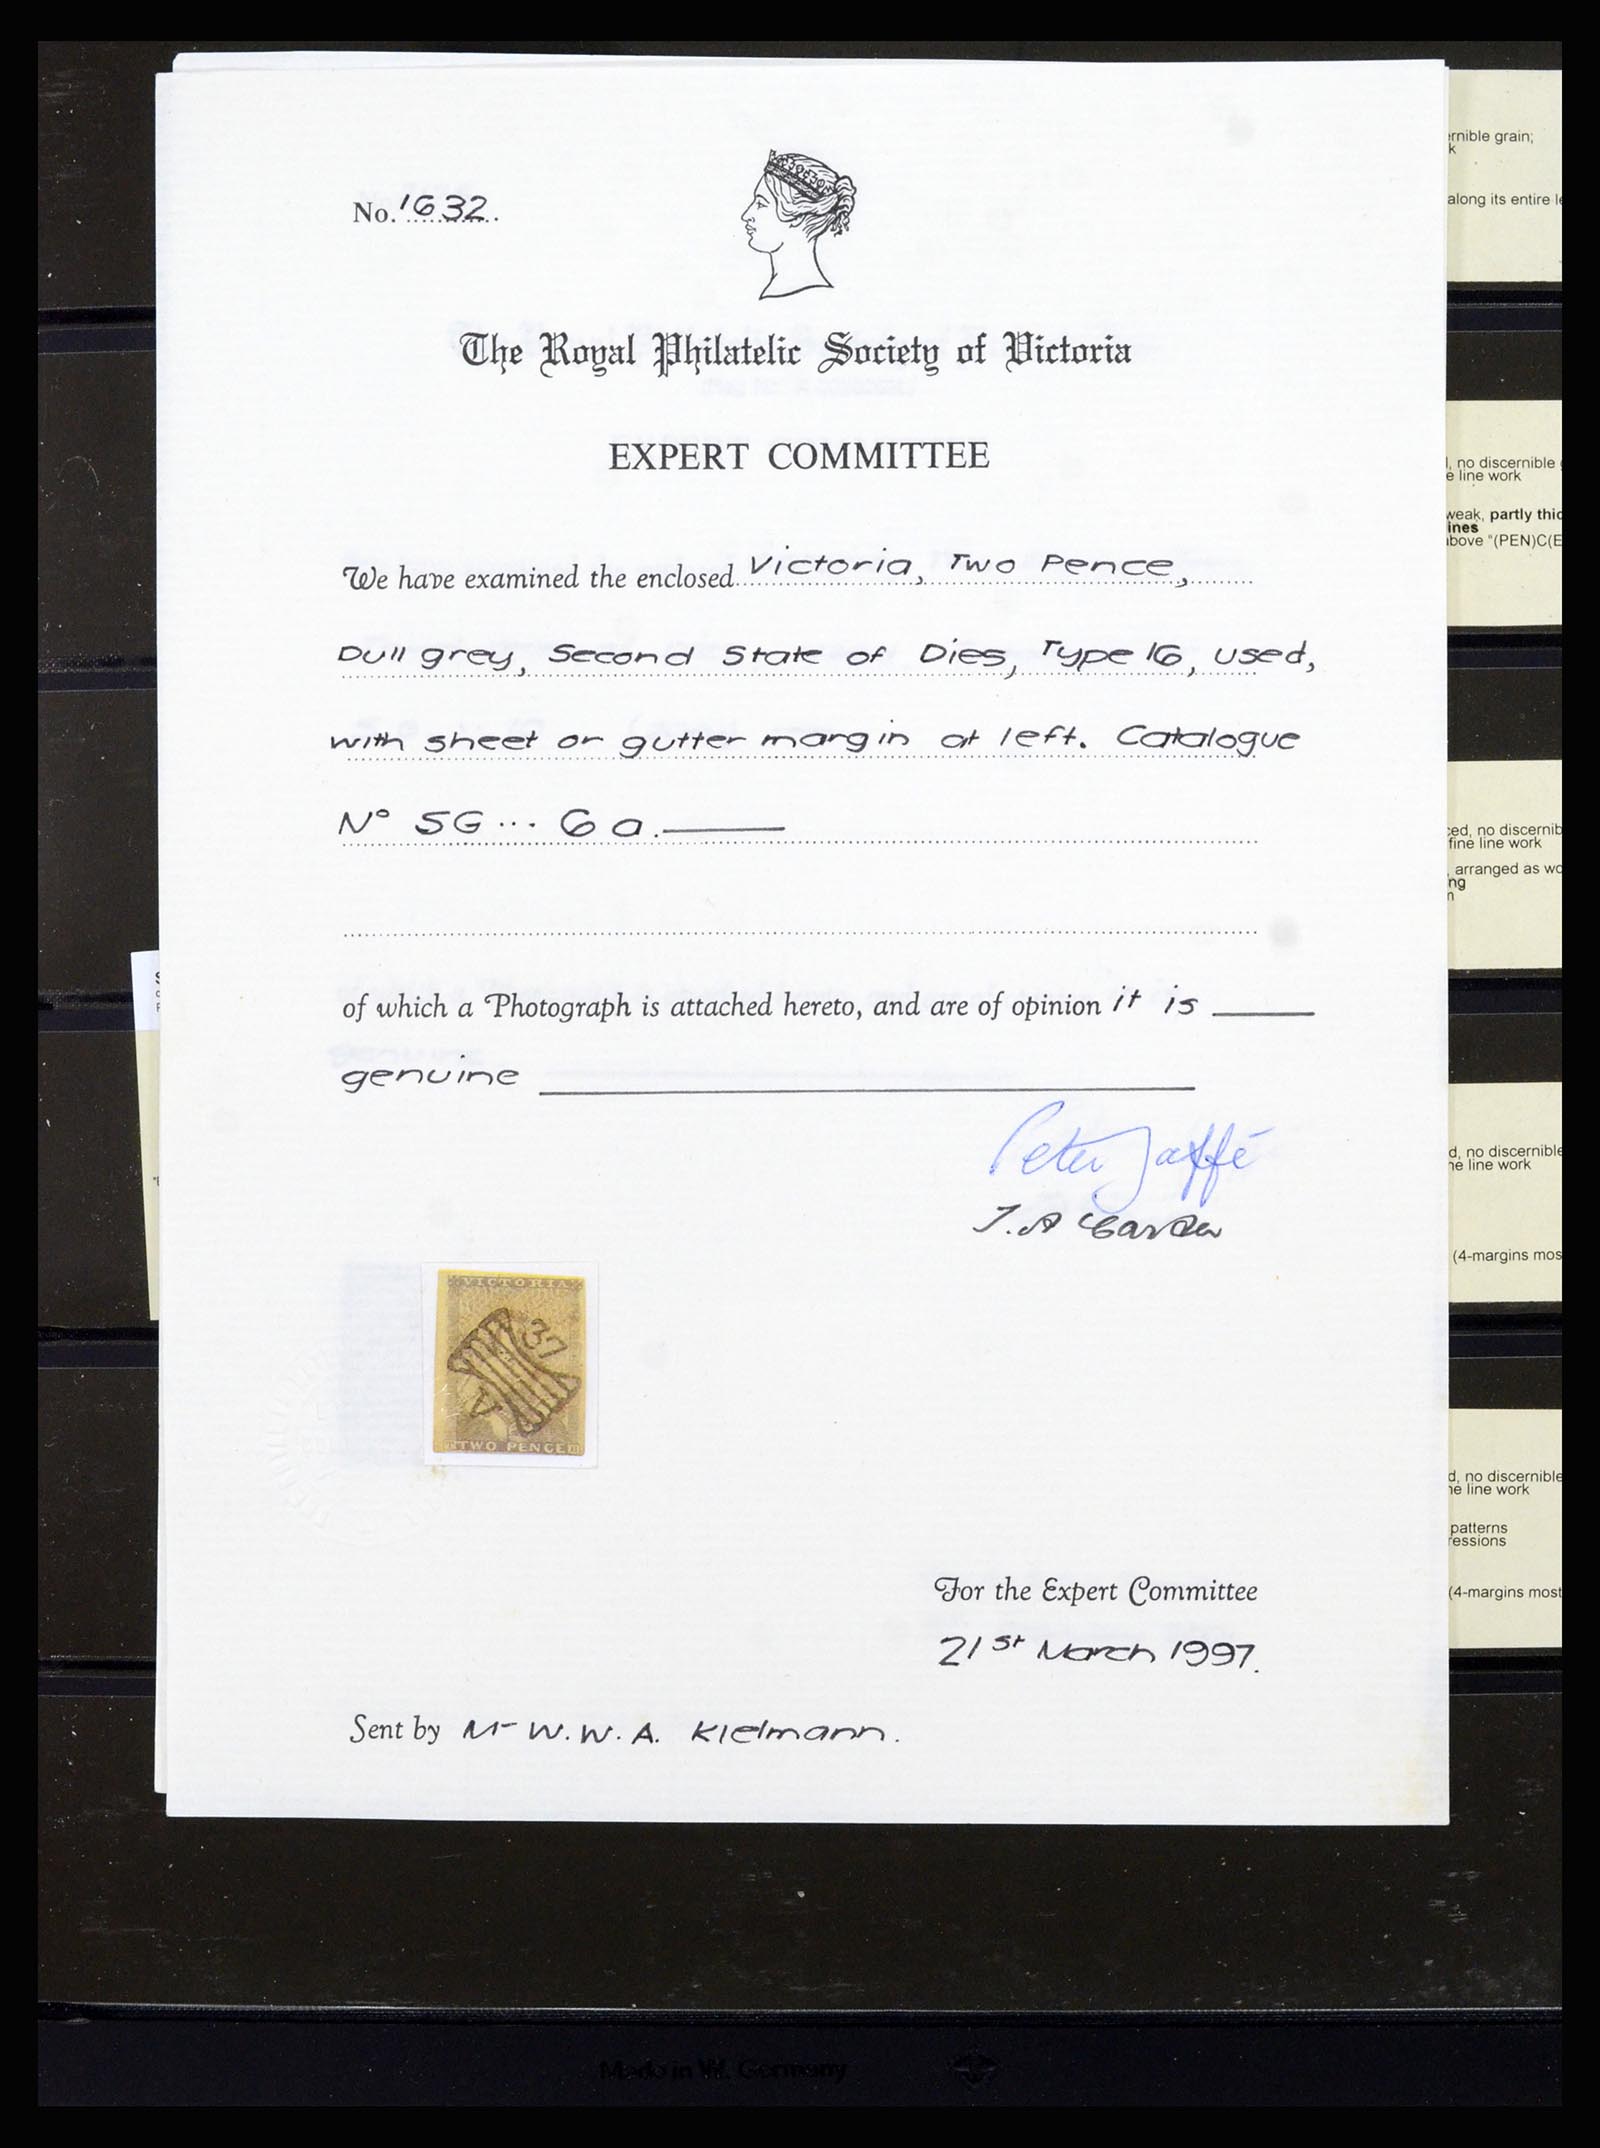 No. 1632.
The Royal Philatelic Society of Victoria
EXPERT COMMITTEE
We have examined the enclosed Victoria, Two Pence,
Dull grey, Second State of Dies, Type 16, used,
with sheet or gutter margin at left. Catalogue
No SG ... 6a.
of which a Photograph is attached hereto, and are of opinion it is
genuine
Peter Jaffé
VICTORIA
37
V
TWO PENCE
For the Expert Committee
21st March 1997.
Sent by Mr W.W.A. Kielmann.
ernible grain;
k
along its entire
, no discernible
e line work
weak, partly
ines
above "(PEN)C(E
ced, no
fine line work
, arranged as
ng
n
d, no discernible
ne line work
(4-margins
d, no discernible
ne line work
patterns
ressions
(4-margins most
Made in W. Germany